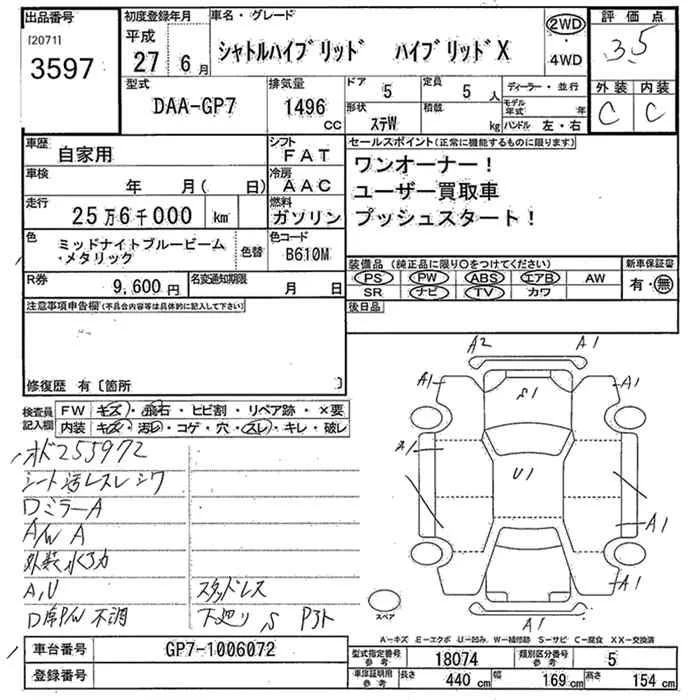 出品番号
[2071]
3597
初度登録年月
平成
27年 6月
車名・グレード
シャトルハイブリッド ハイブリッドX
2WD
・
4WD
評価点
3.5
外装 内装
C C
型式
DAA-GP7
排気量
1496
CC
ドア
5
定員
5 人
形状
ステW
積載
kg
ディーラー・並行
モデル年式 年
ハンドル 左・右
車歴
自家用
シフト
FAT
車検
年 月( 日)
冷房
AAC
走行
25万6千000 km
燃料
ガソリン
色
ミッドナイトブルービーム
・メタリック
色替
色コード
B610M
R券
9,600円
名変通知期限
月 日
セールスポイント(正常に機能するものに限ります)
ワンオーナー!
ユーザー買取車
プッシュスタート!
装備品(純正品に限り〇をつけてください)
PS PW ABS エアB AW
SR ナビ TV カワ
新車保証書
有・無
後日品
注意事項申告欄(不具合内容等は具体的に記入して下さい)
修復歴 有〔箇所 〕
検査員
記入欄
FW キズ・飛石・ヒビ割・リペア跡・×要
内装 キズ・汚レ・コゲ・穴・スレ・キレ・破レ
オド255972
シート汚レスレシワ
DミラーA
A/W A
外装水アカ
A,U スタッドレス
D席P/W不調 下廻りS
A2 A1
A1 S1 A1
A1
U1
A1
A1
A1
スペア
A-キズ E-エクボ U-凹み W-補修跡 S-サビ C-腐食 XX-交換済
車台番号
GP7-1006072
登録番号
型式指定番号
参考
18074
類別区分番号
参考
5
車庫証明用
参考
長さ 440 cm 幅 169 cm 高さ 154 cm